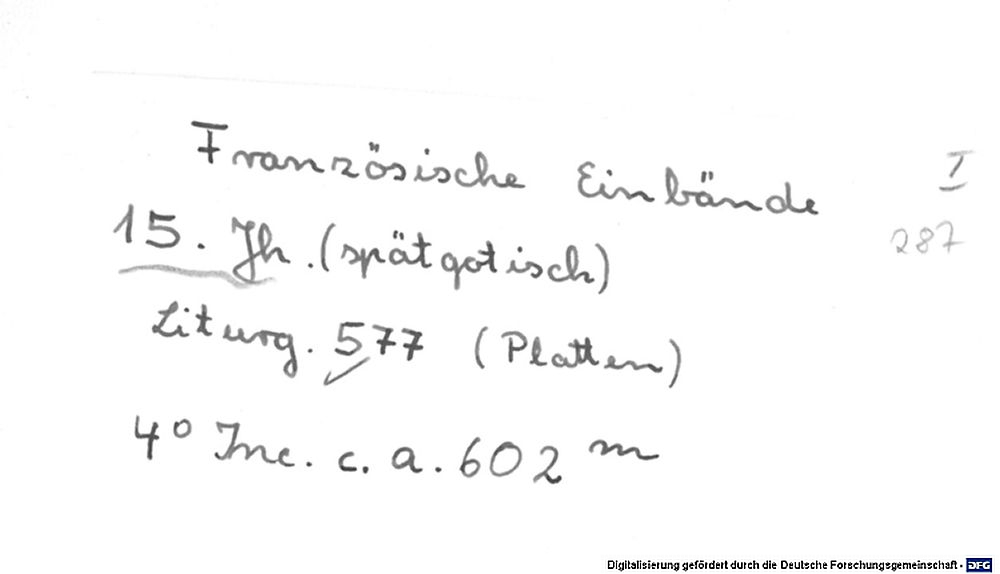 Französische Einbände I
15. Jh. (spätgotisch) 287
Liturg. 577 (Platten)
4° Inc. c. a. 602 m
Digitalisierung gefördert durch die Deutsche Forschungsgemeinschaft - DFG